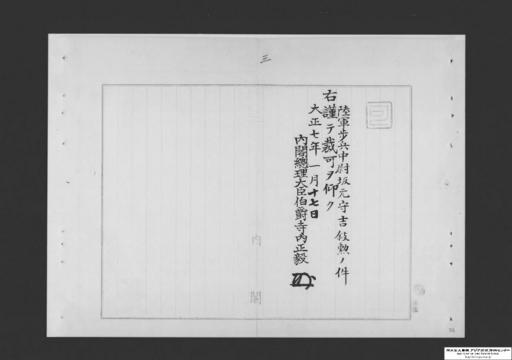 三
陸軍歩兵中尉坂元守吉敍勲ノ件
右謹テ裁可ヲ仰ク
大正七年一月十七日
內閣總理大臣伯爵寺內正毅
內閣